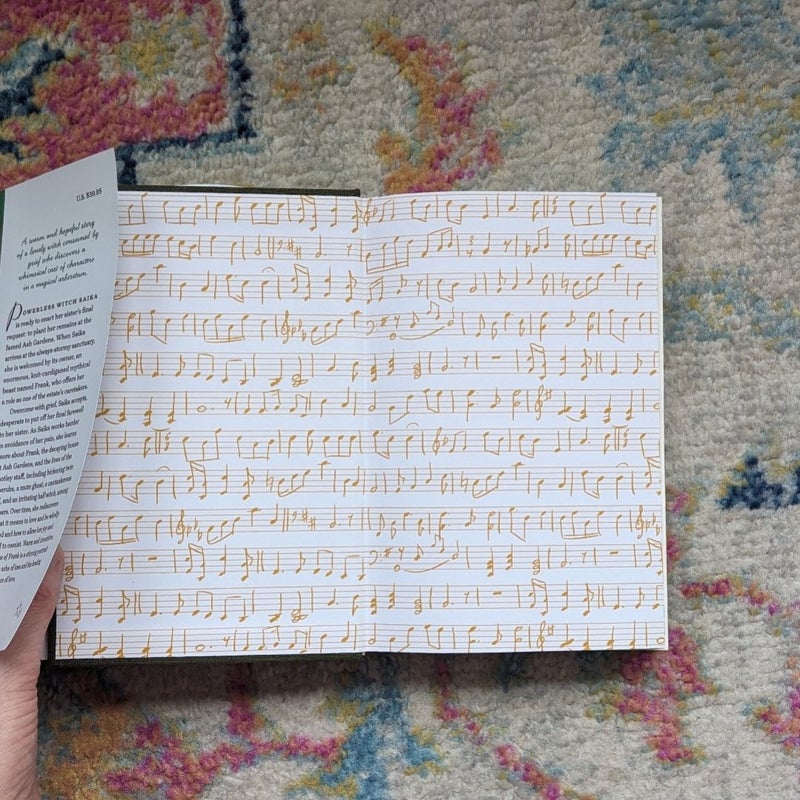 U.S. $39.95
A warm and hopeful story
of a lonely witch consumed by
grief who discovers a
whimsical cast of characters
in a magical arboretum.
POWERLESS WITCH SAIKA
is ready to enact her sister's final
request: to plant her remains at the
famed Ash Gardens. When Saika
arrives at the always-stormy sanctuary,
she is welcomed by its owner, an
enormous, knit-cardiganed mythical
beast named Frank, who offers her
a role as one of the estate's caretakers.
Overcome with grief, Saika accepts,
desperate to put off her final farewell
to her sister. As Saika works harder
avoidance of her pain, she learns
more about Frank, the decaying house
Ash Gardens, and the lives of the
motley staff, including bickering twin
a mute ghost, a cantankerous
and an irritating half witch
Over time, she rediscovers
it means to love and be
and how to allow joy and
to coexist. Warm and
of Frank is a